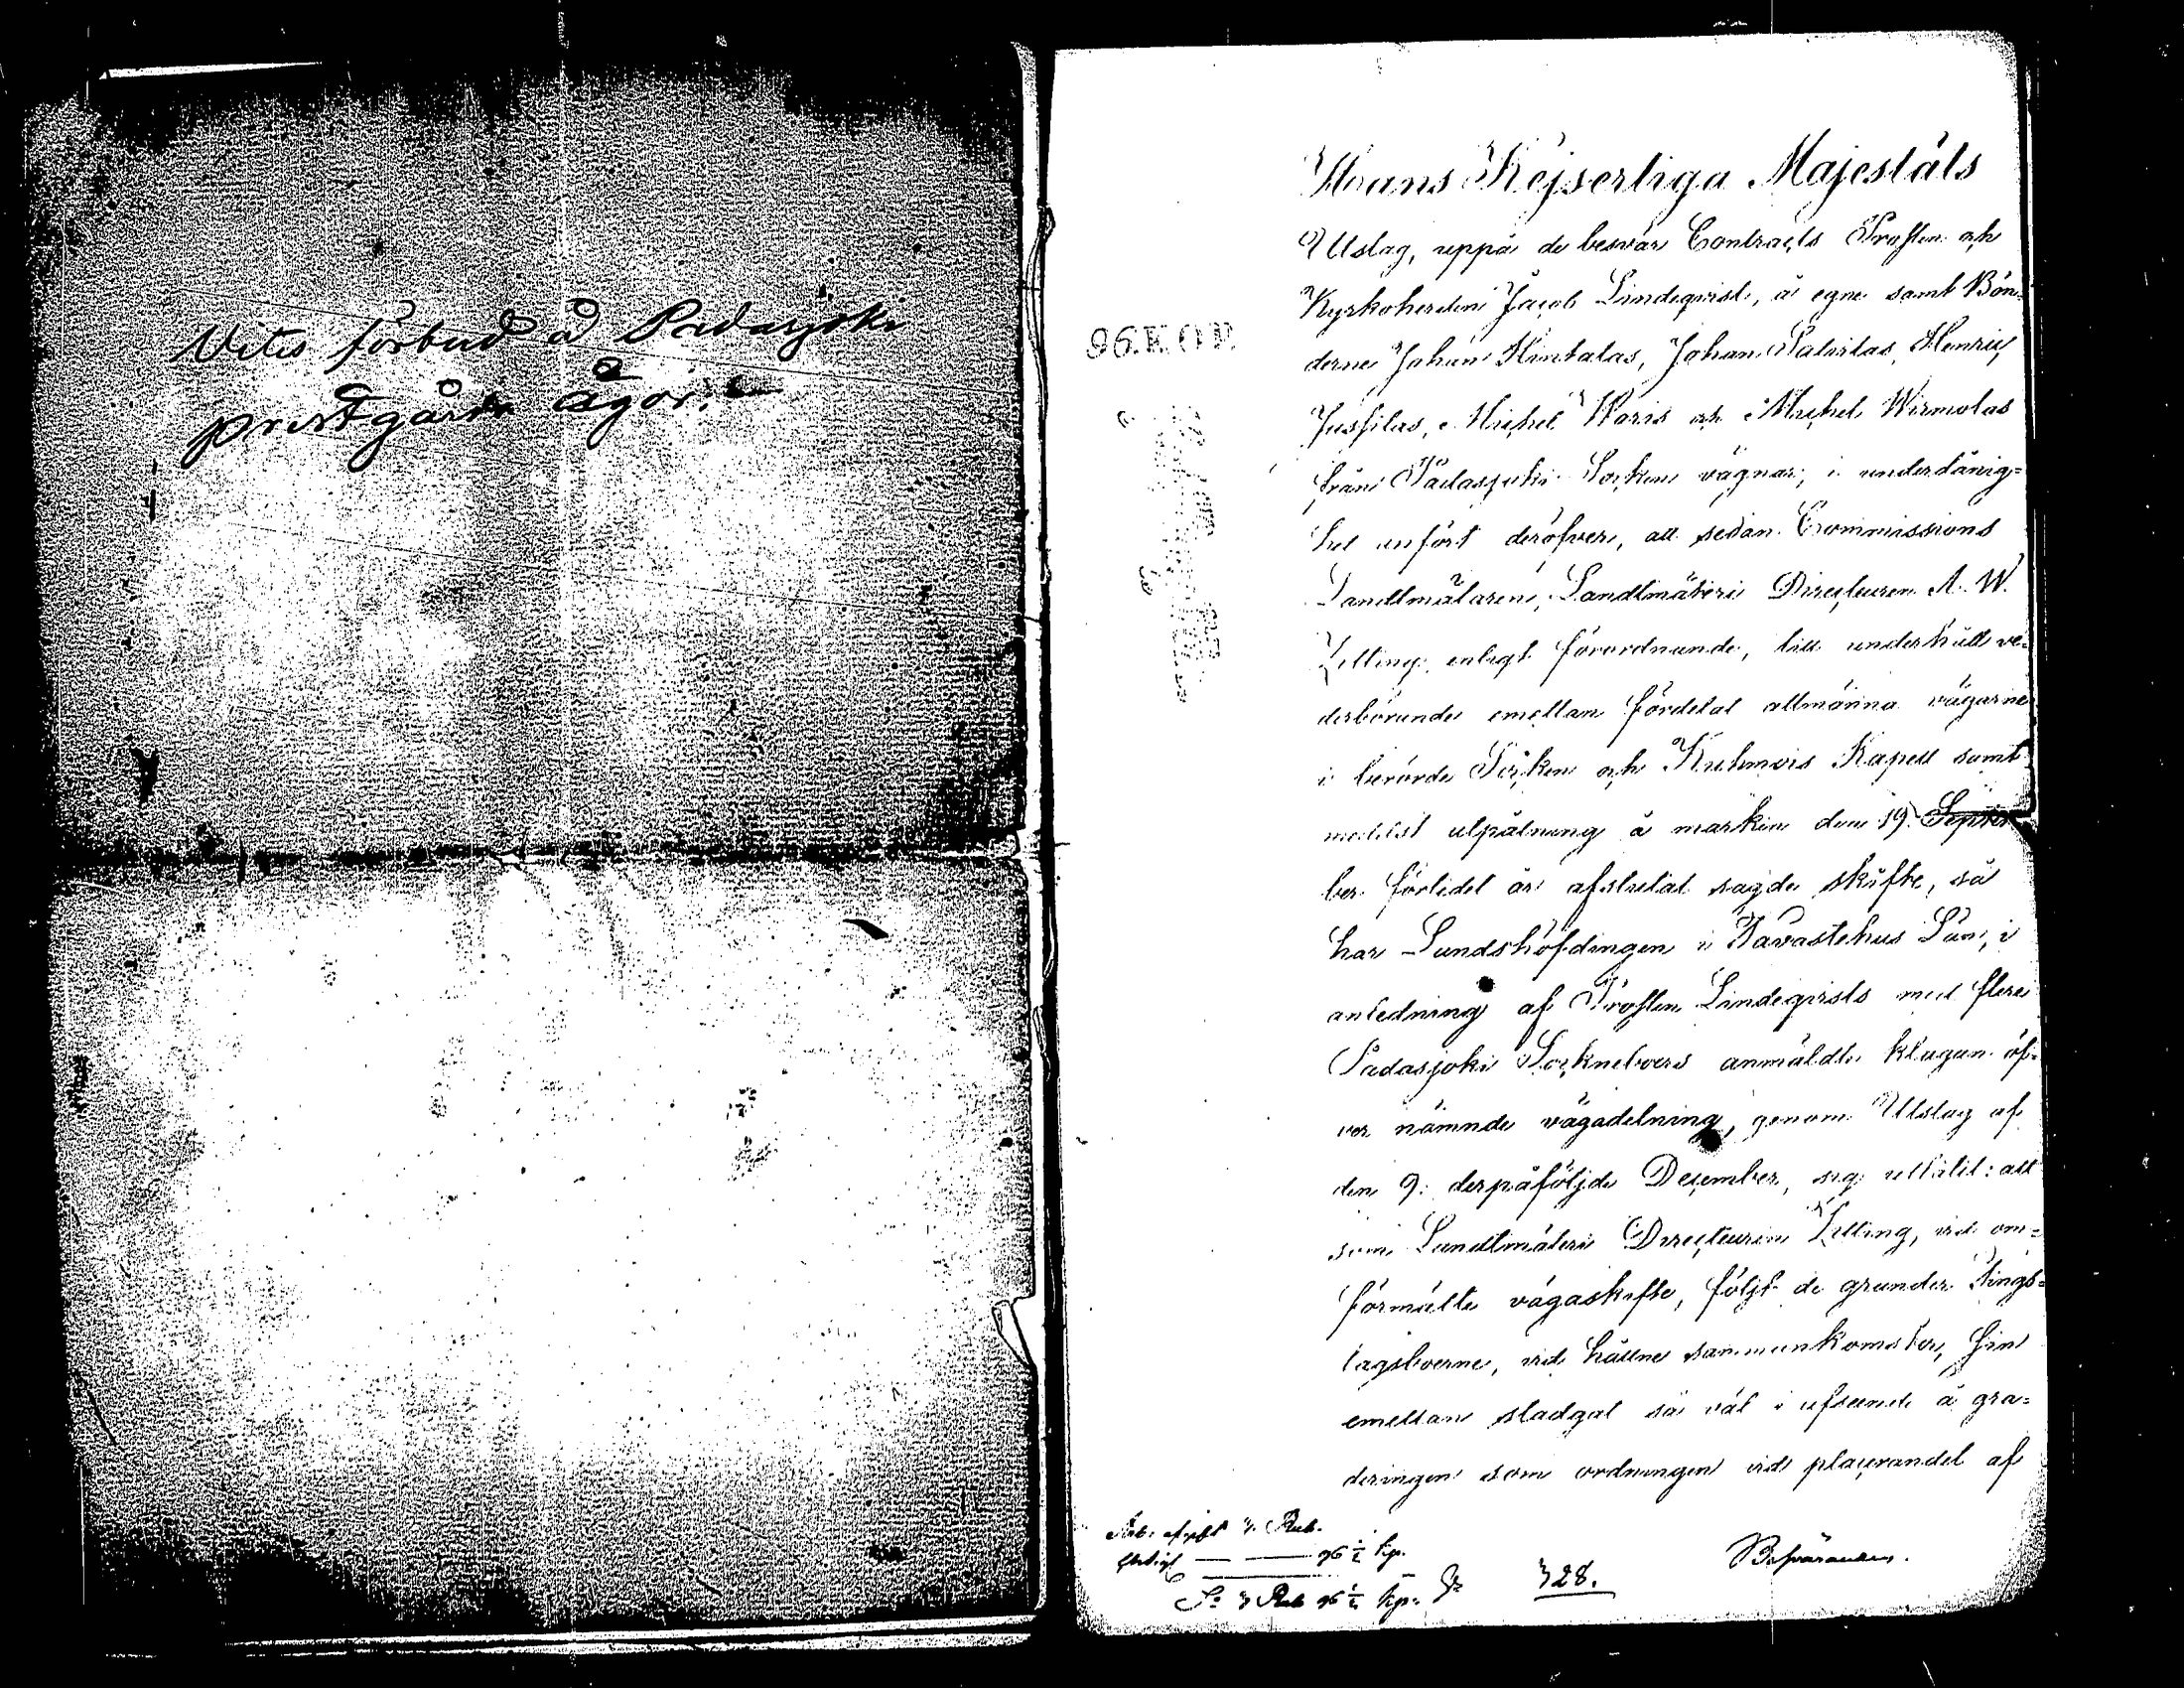 Vites förbud å Padasjoki
prestgårds ägor.
Hans Kejserliga Majestäts
Utslag, uppå de besvär Contracts Prosten och
Kyrkoherden Jacob Lindeqvist, å egne samt Bön-
derne Johan Hintalas, Johan Palislas, Henric
Jussilas, Michel Waris och Michel Wirmolas
från Padasjoki Socken vägnar, i underdånig-
het anfört deröfver, att sedan Commissions
Landtmätaren, Landtmäteri Directeuren A. W.
Zitting enligt förordnande, till underhåll ve-
derbörande emellan fördelat allmänna vägarne
i berörde Socken och Kuhmois Kapell samt
medelst utpålning å marken den 19 Septem
ber förlidet år afslutat sagde skifte, så
har Landshöfdingen i Tavastehus Län, i
anledning af Prosten Lindeqvists med flere
Padasjoki Sockneboers anmäldte klagan öf-
ver nämnde vägadelning, genom Utslag af
den 9: derpåföljde December, sig utlåtit: att
som Landtmäteri Directeuren Zitting, vid om-
förmälte vägaskifte, följt de grunder Tings-
lagsboerne, vid hållne sammankomster, sin
emellan stadgat så väl i afseende å gra-
deringen som ordningen vid placerandet af
Besväranden.
96 ½ kp.
S:a 3 Rub 96 ½ kp.
328.